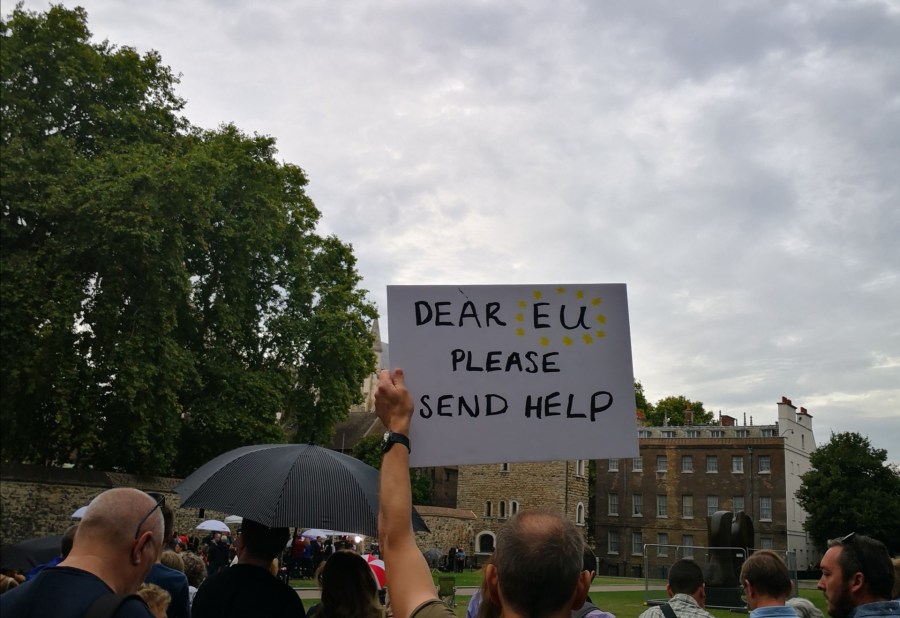 DEAR EU
PLEASE
SEND HELP